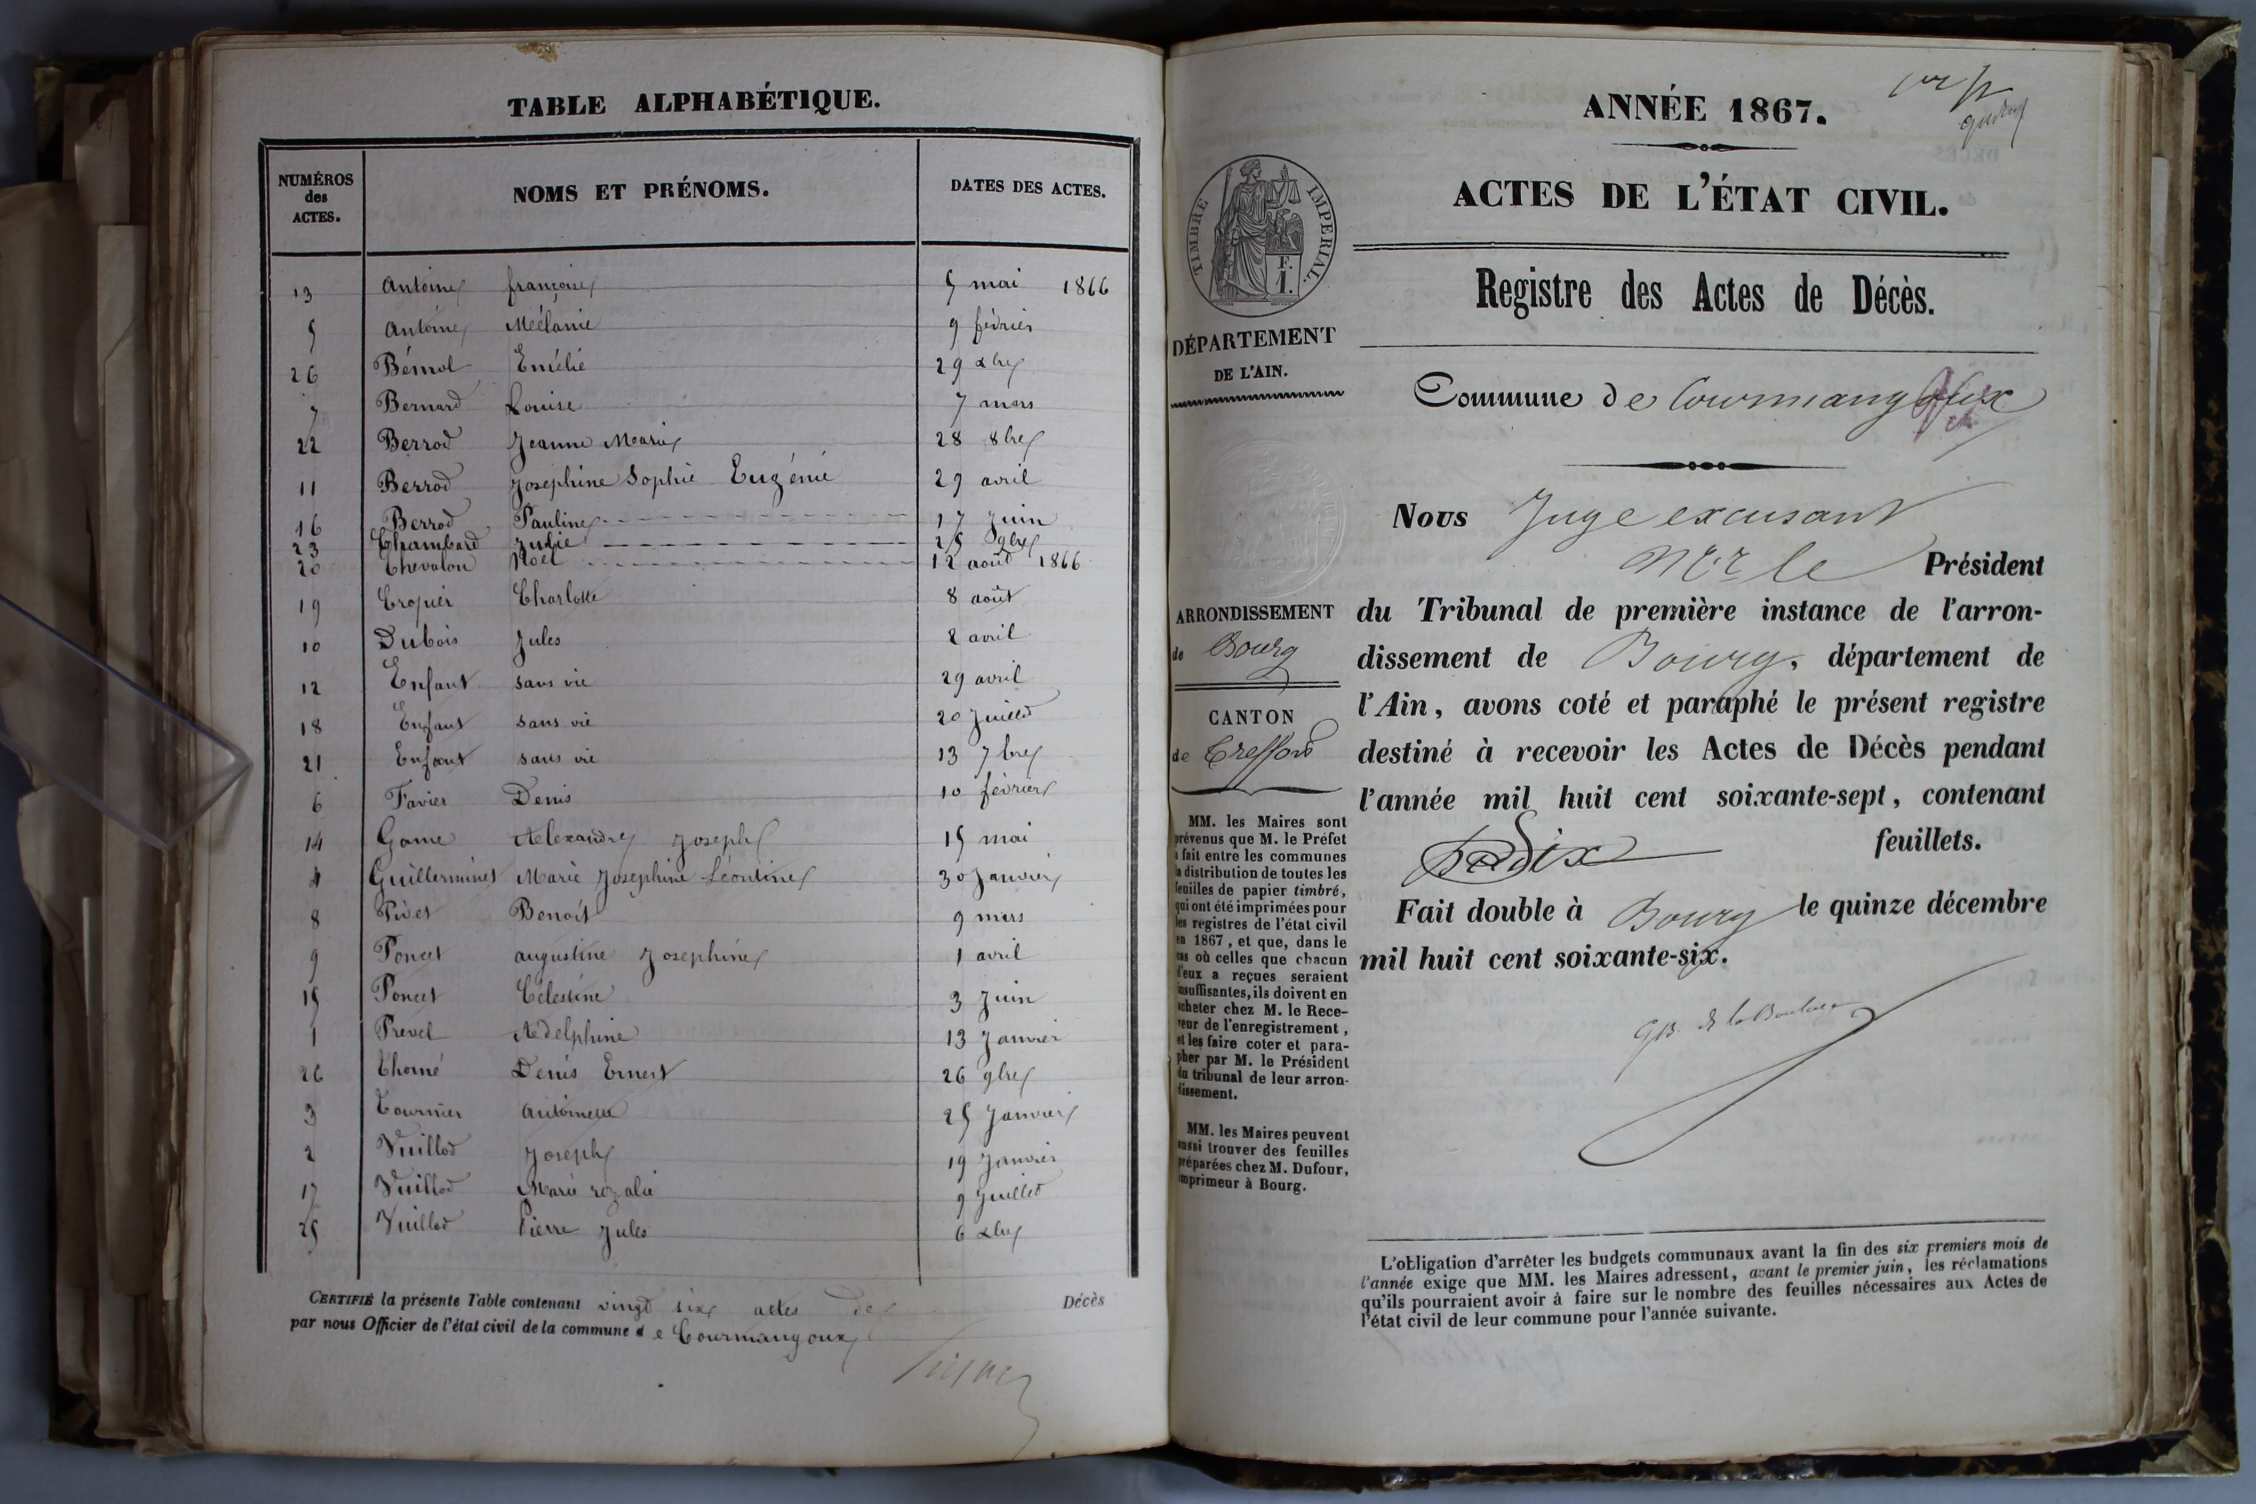 TABLE ALPHABÉTIQUE.
NUMÉROS des ACTES. NOMS ET PRÉNOMS. DATES DES ACTES.
13 Antoine françoise 5 mai 1866
5 Antoine Méélanie 9 février
26 Bémol Emélie 29 xbre
7 Bernard Louise 7 mars
22 Berrod Jeanne Marie 28 8bre
11 Berrod Josephine Sophie Eugénie 29 avril
16 Berrod Pauline 17 Juin
23 Chambard Julie 25 9bre
20 Chevalon Noël 12 août 1866
19 Cropier Charlotte 8 août
10 Dubois Jules 2 avril
12 Enfant sans vie 29 avril
18 Enfant sans vie 20 Juillet
21 Enfant sans vie 13 7bre
6 Favier Denis 10 février
14 Game Alexandre Joseph 15 mai
4 Guillerminet Marie Josephine Léontine 30 Janvier
8 Pivet Benoit 9 mars
9 Poncet augustine Josephine 1 avril
15 Poncet Célestine 3 Juin
1 Prevel Adelphine 13 Janvier
26 Thomé Denis Ernest 26 9bre
3 Tournier antoinette 25 Janvier
2 Vuillod Joseph 19 Janvier
17 Vuillod Marie rozalie 9 Juillet
25 Vuillod Pierre Jules 6 xbre
CERTIFIÉ la présente Table contenant vingt six actes de Décès
par nous Officier de l'état civil de la commune de Courmangoux
ANNÉE 1867.
ACTES DE L'ÉTAT CIVIL.
Registre des Actes de Décès.
TIMBRE IMPERIAL.
F.
1.
DÉPARTEMENT
DE L'AIN.
Commune de Courmangoux
ARRONDISSEMENT
de Bourg
CANTON
de Treffort
MM. les Maires sont
prévenus que M. le Préfet
a fait entre les communes
la distribution de toutes les
feuilles de papier timbré,
qui ont été imprimées pour
les registres de l'état civil
en 1867, et que, dans le
cas où celles que chacun
d'eux a reçues seraient
insuffisantes, ils doivent en
acheter chez M. le Rece-
veur de l'enregistrement,
et les faire coter et para-
pher par M. le Président
du tribunal de leur arron-
dissement.
MM. les Maires peuvent
aussi trouver des feuilles
préparées chez M. Dufour,
imprimeur à Bourg.
Nous Juge excusant
Mr le Président
du Tribunal de première instance de l'arron-
dissement de Bourg, département de
l'Ain, avons coté et paraphé le présent registre
destiné à recevoir les Actes de Décès pendant
l'année mil huit cent soixante-sept, contenant
dix feuillets.
Fait double à Bourg le quinze décembre
mil huit cent soixante-six.
L'obligation d'arrêter les budgets communaux avant la fin des six premiers mois de
l'année exige que MM. les Maires adressent, avant le premier juin, les réclamations
qu'ils pourraient avoir à faire sur le nombre des feuilles nécessaires aux Actes de
l'état civil de leur commune pour l'année suivante.